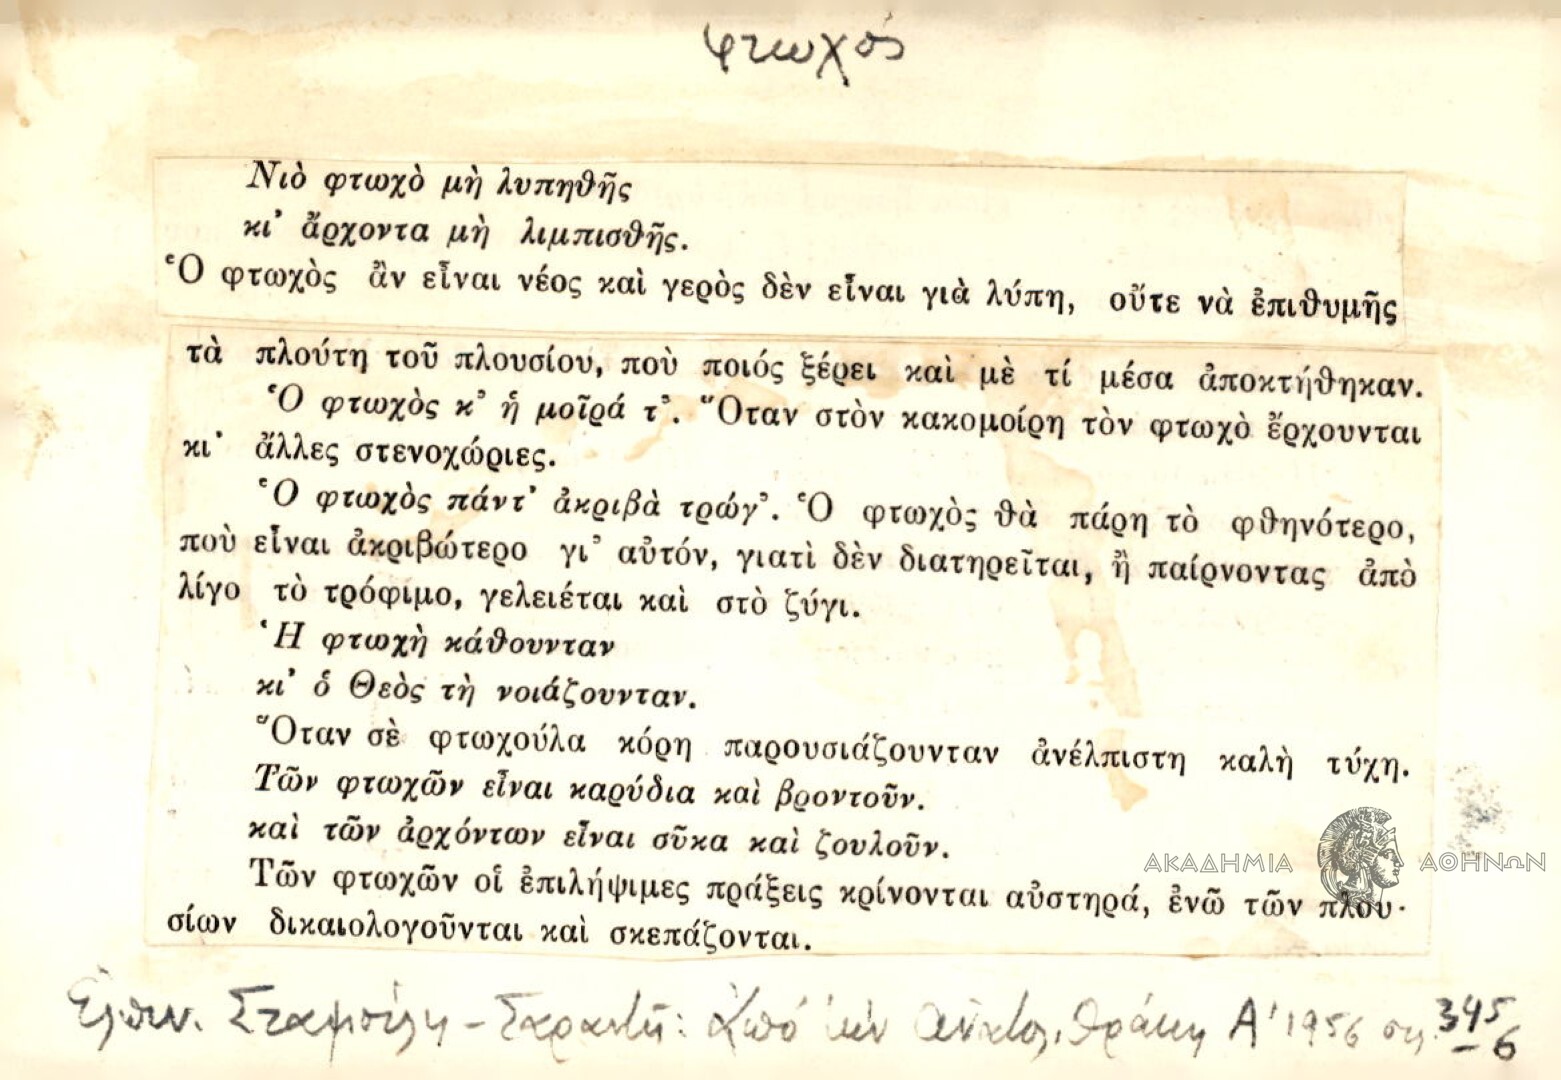 φτωχός
Νιὸ φτωχὸ μὴ λυπηθῆς
κι᾿ ἄρχοντα μὴ λιμπισθῆς.
Ὁ φτωχὸς ἂν εἶναι νέος καὶ γερὸς δὲν εἶναι γιὰ λύπη, οὔτε νὰ ἐπιθυμῆς
τὰ πλούτη τοῦ πλουσίου, ποὺ ποιός ξέρει καὶ μὲ τί μέσα ἀποκτήθηκαν.
Ὁ φτωχὸς κ᾿ ἡ μοῖρά τ᾿. Ὅταν στὸν κακομοίρη τὸν φτωχὸ ἔρχουνται
κι᾿ ἄλλες στενοχώριες.
Ὁ φτωχὸς πάντ᾿ ἀκριβὰ τρώγ᾿. Ὁ φτωχὸς θὰ πάρη τὸ φθηνότερο,
ποὺ εἶναι ἀκριβώτερο γι᾿ αὐτόν, γιατὶ δὲν διατηρεῖται, ἢ παίρνοντας ἀπὸ
λίγο τὸ τρόφιμο, γελειέται καὶ στὸ ζύγι.
Ἡ φτωχὴ κάθουνταν
κι᾿ ὁ Θεὸς τὴ νοιάζουνταν.
Ὅταν σὲ φτωχούλα κόρη παρουσιάζουνταν ἀνέλπιστη καλὴ τύχη.
Τῶν φτωχῶν εἶναι καρύδια καὶ βροντοῦν.
καὶ τῶν ἀρχόντων εἶναι σῦκα καὶ ζουλοῦν.
Τῶν φτωχῶν οἱ ἐπιλήψιμες πράξεις κρίνονται αὐστηρά, ἐνῶ τῶν πλου-
σίων δικαιολογοῦνται καὶ σκεπάζονται.
ΑΚΑΔΗΜΙΑ ΑΘΗΝΩΝ
Ἐλπιν. Σταμούλη - Σαραντῆ: Ἀπό τὴν Ἀνατολ. Θράκη Α' 1956 σελ. 345
- 6